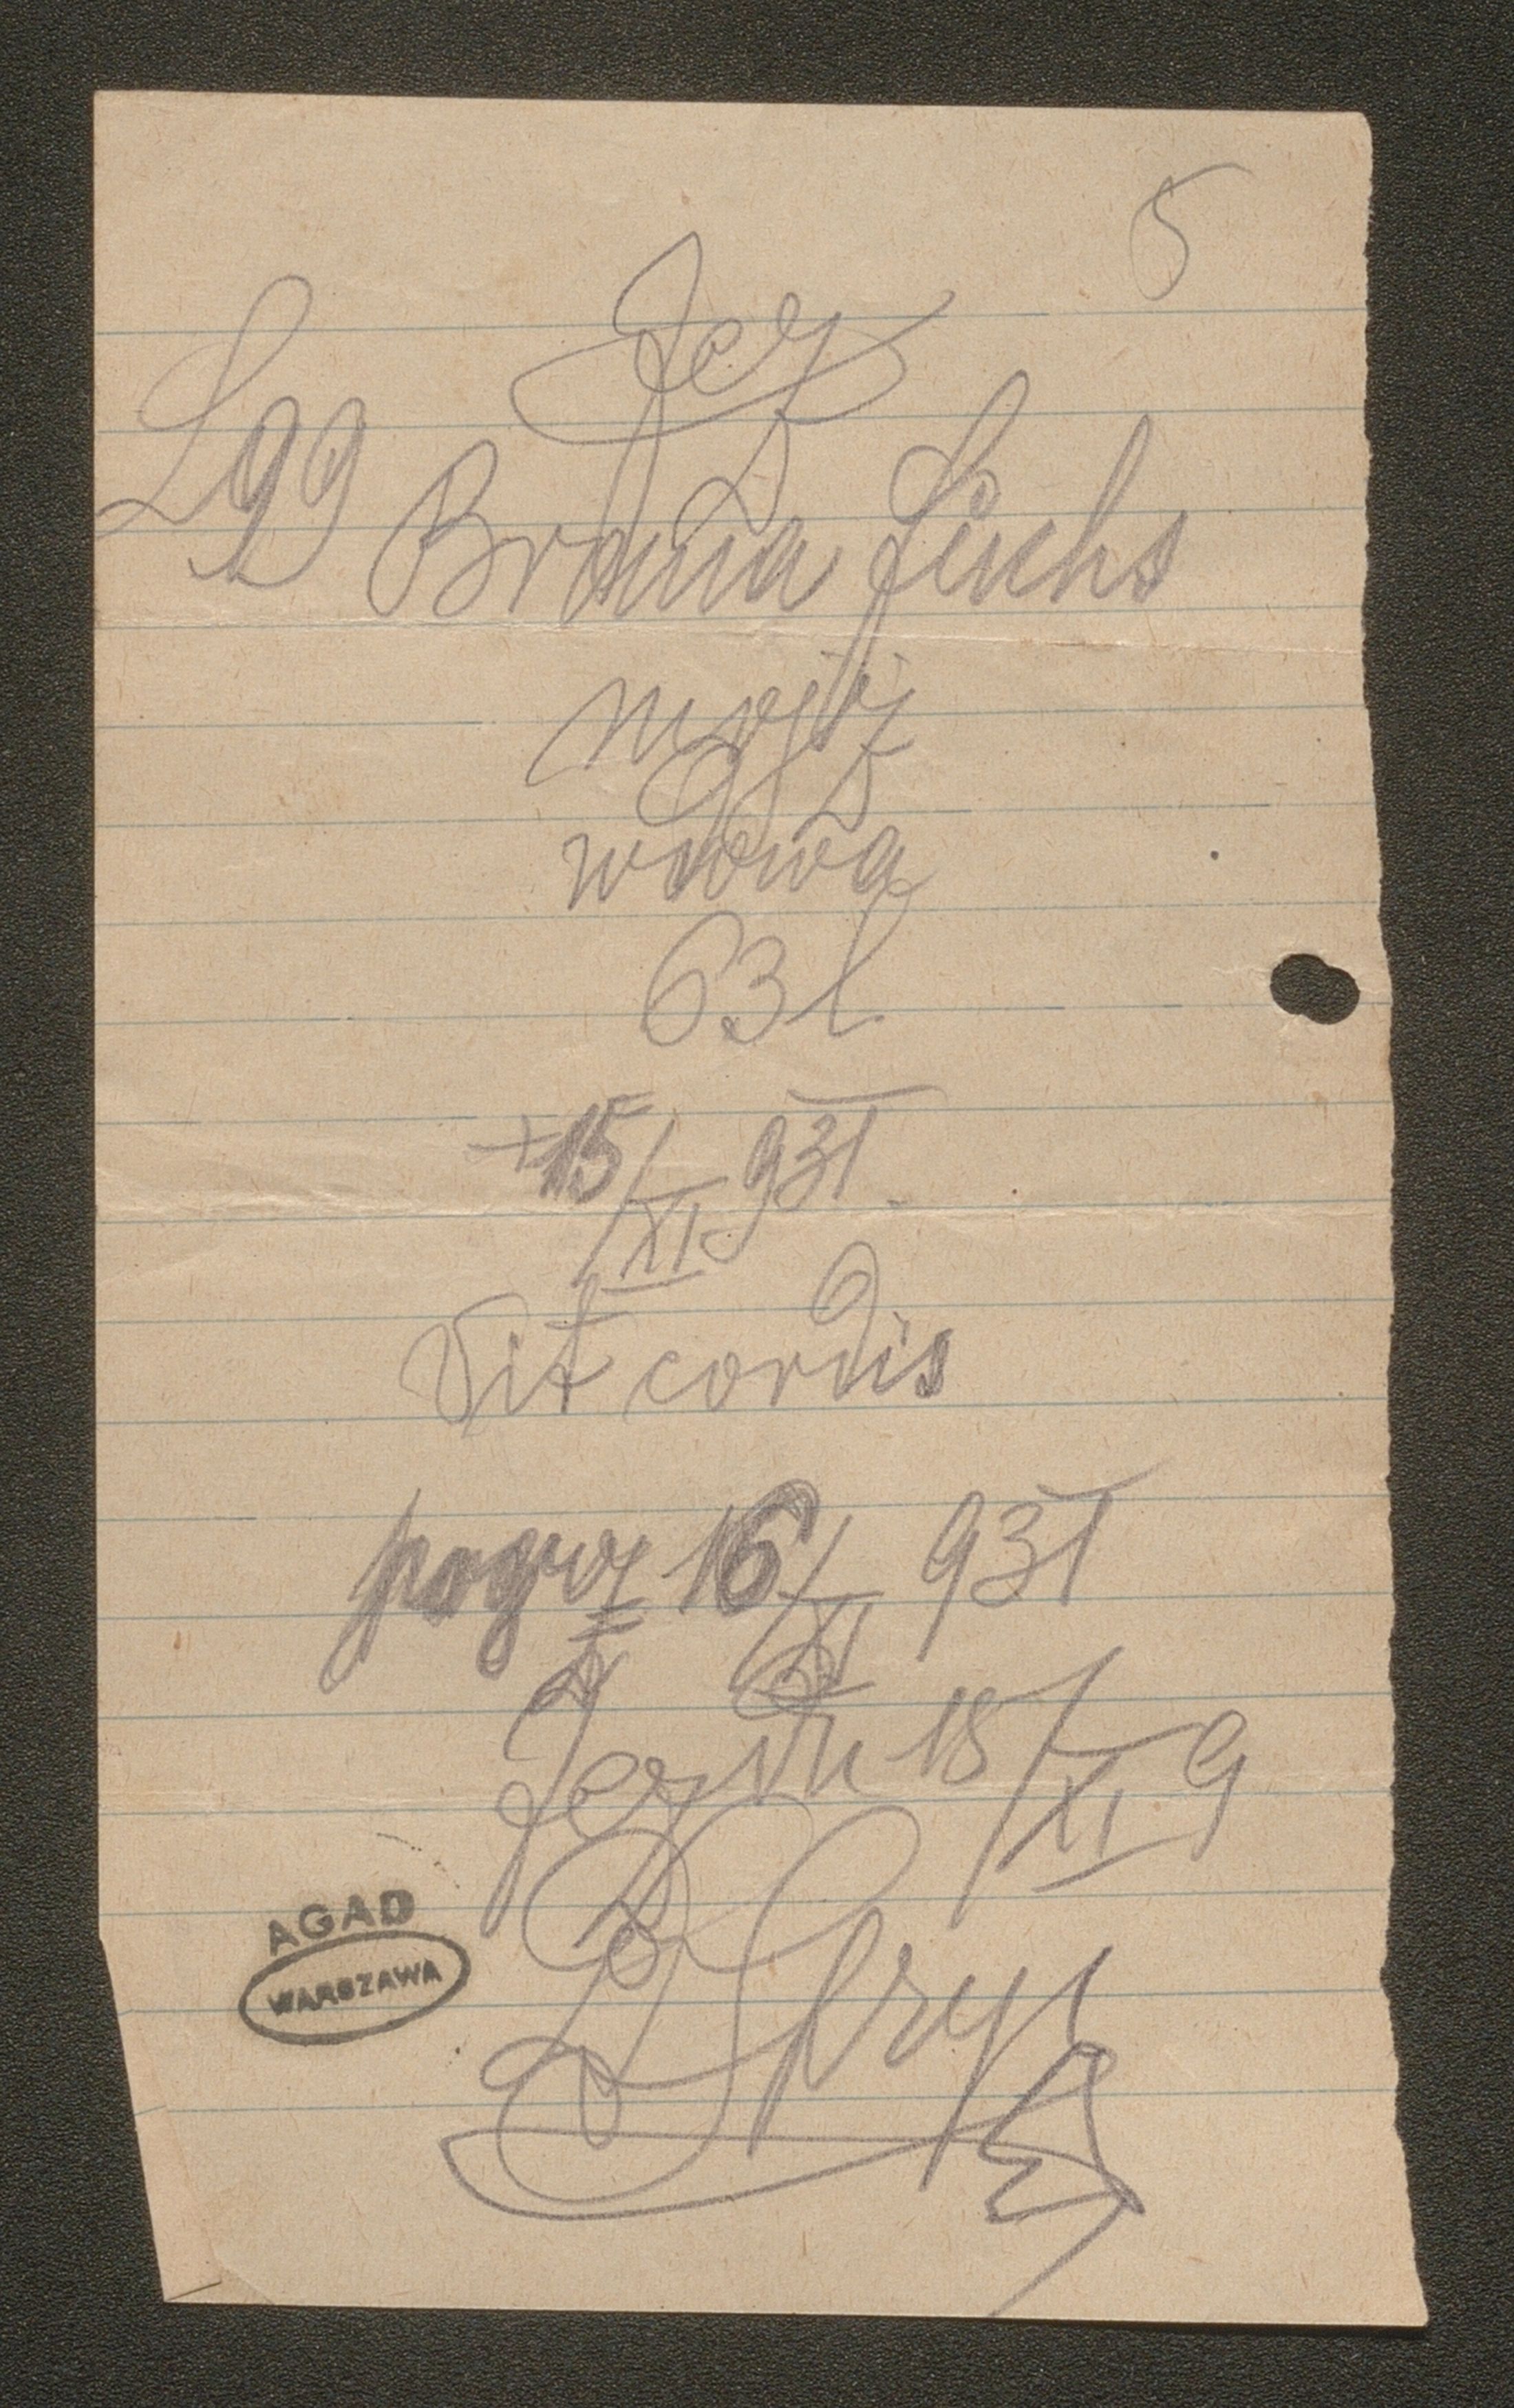 5
Jez
L 99 Brana Fuchs
mojż
wdowa
63 l
+ 15/XI 931
Vit cordis
pogrz 16/XI 931
Jez dn 18/XI 9
AGAD
WARSZAWA